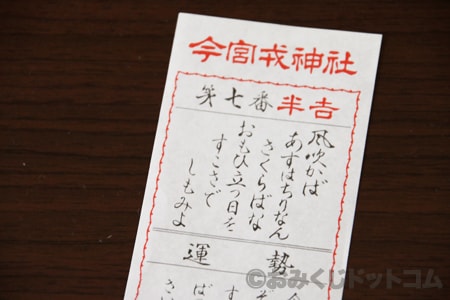 今宮戎神社
第七番 半吉
風吹かば
あすはちりなん
さくらばな
おもひ立つ日を
すごさで
しもみよ
運勢
©おみくじドットコム